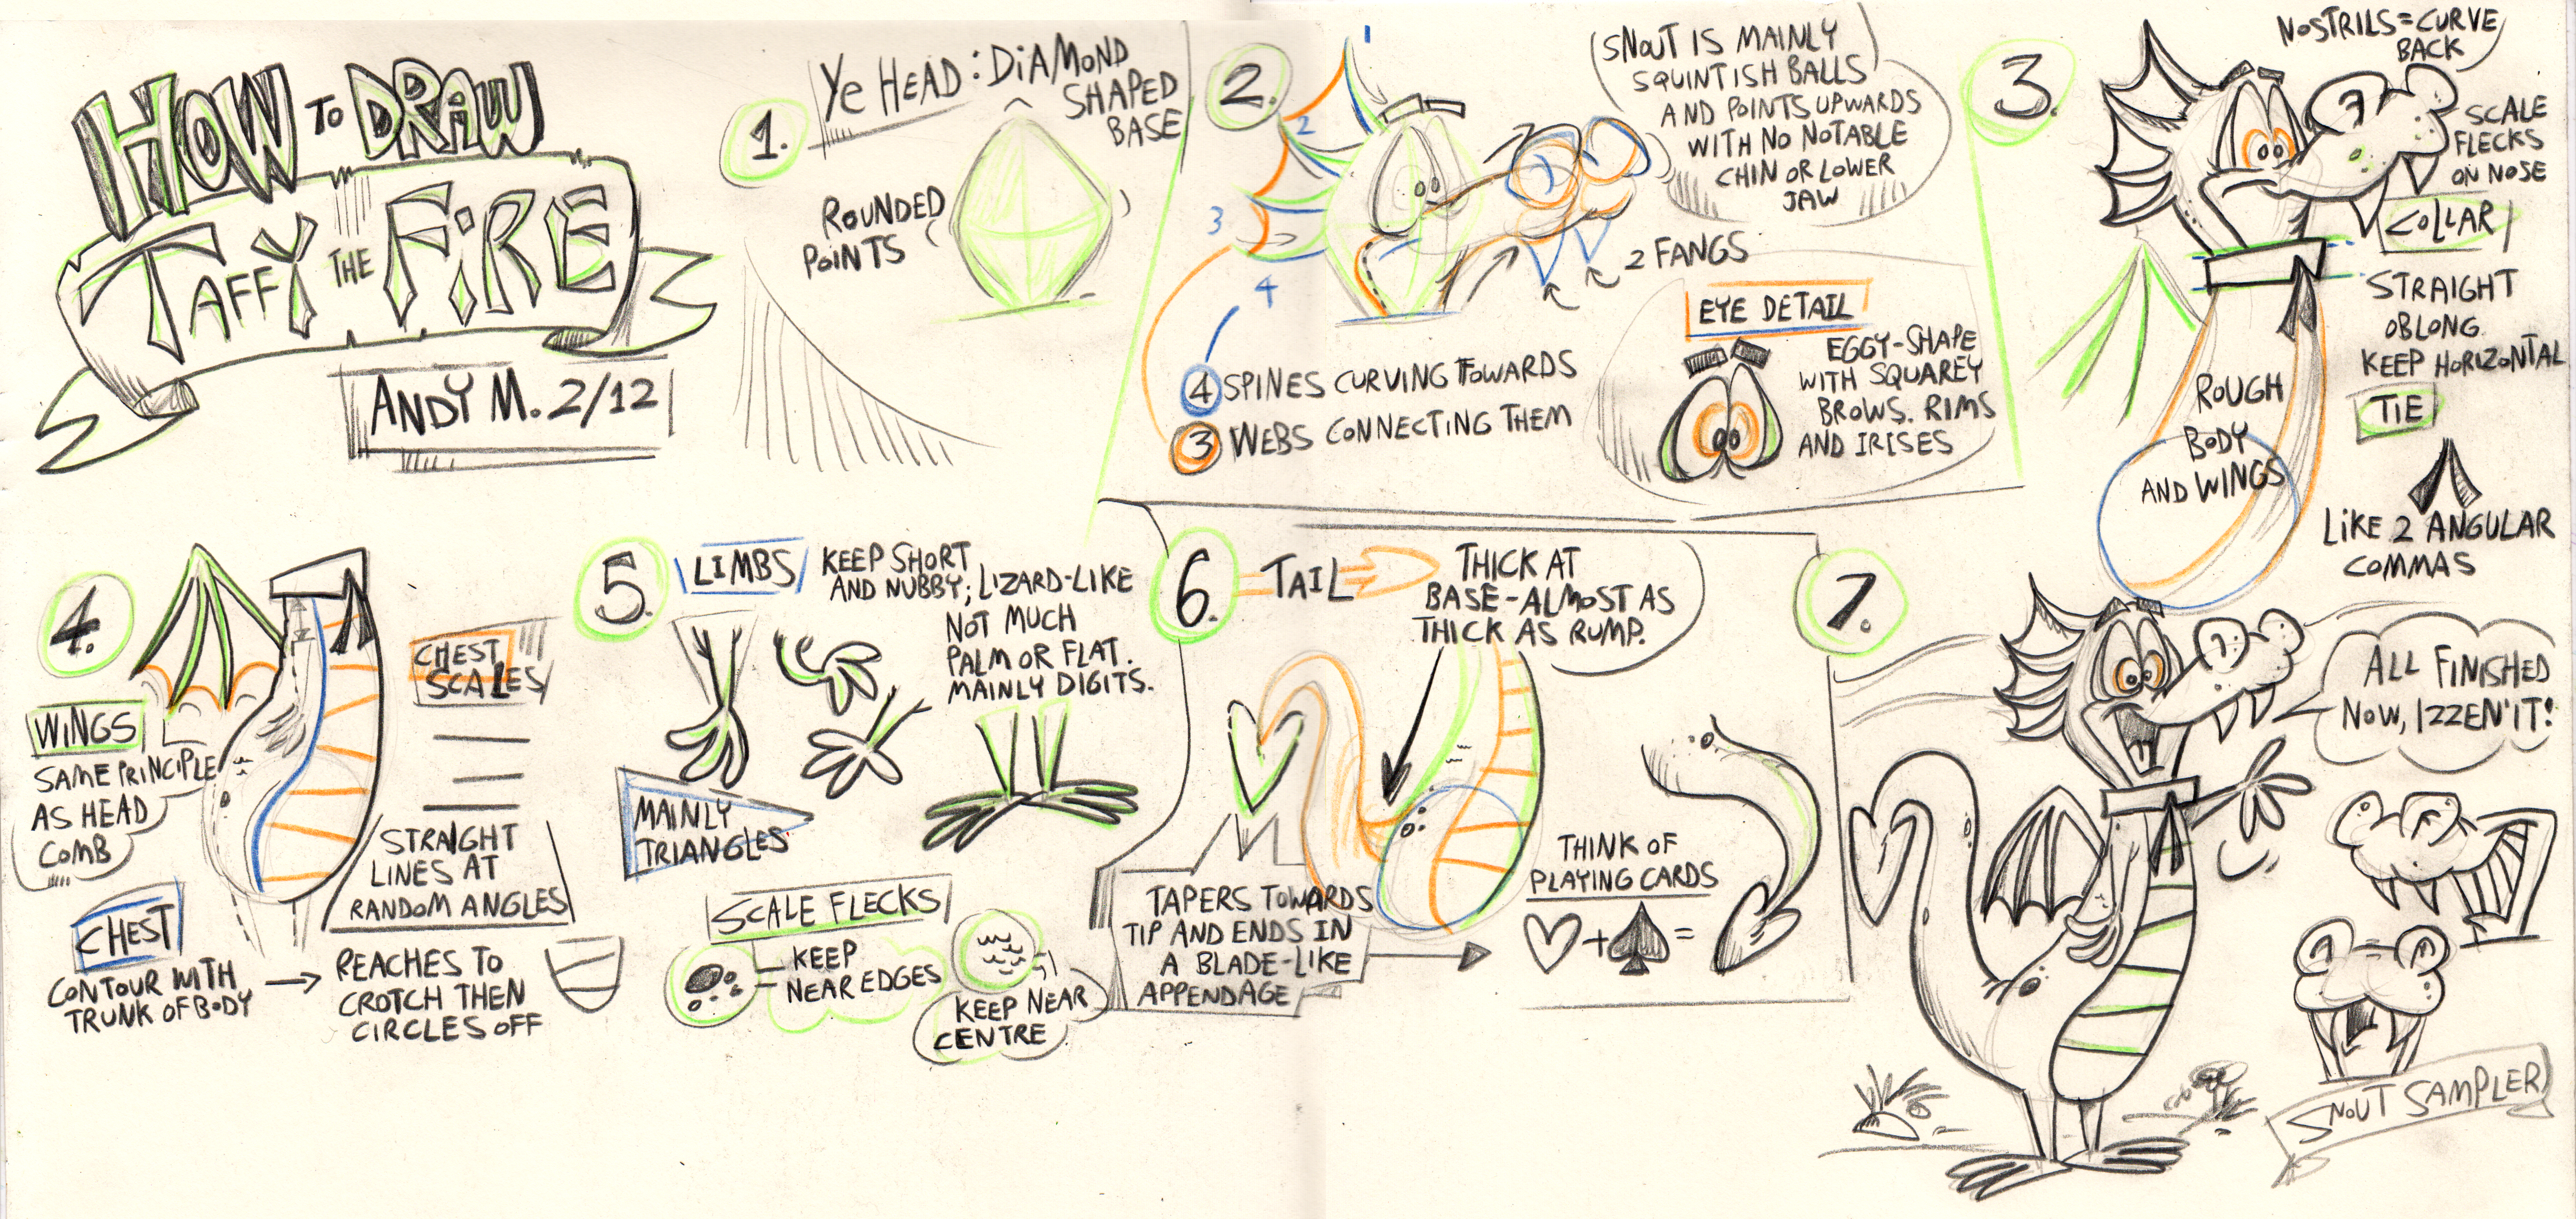 HOW TO DRAW
TAFFY THE FIRE
ANDY M. 2/12
1.
Ye HEAD: DIAMOND
SHAPED
BASE
ROUNDED
POINTS
2.
1
2
3
4
SNOUT IS MAINLY
SQUINTISH BALLS
AND POINTS UPWARDS
WITH NO NOTABLE
CHIN OR LOWER
JAW
2 FANGS
4 SPINES CURVING TOWARDS
3 WEBS CONNECTING THEM
EYE DETAIL
EGGY-SHAPE
WITH SQUAREY
BROWS. RIMS
AND IRISES
3.
NOSTRILS = CURVE
BACK
SCALE
FLECKS
ON NOSE
COLLAR
STRAIGHT
OBLONG
KEEP HORIZONTAL
TIE
LIKE 2 ANGULAR
COMMAS
ROUGH
BODY
AND WINGS
4.
WINGS
SAME PRINCIPLE
AS HEAD
COMB
CHEST
SCALES
STRAIGHT
LINES AT
RANDOM ANGLES
CHEST
CONTOUR WITH
TRUNK OF BODY
REACHES TO
CROTCH THEN
CIRCLES OFF
5.
LIMBS
KEEP SHORT
AND NUBBY; LIZARD-LIKE
NOT MUCH
PALM OR FLAT.
MAINLY DIGITS.
MAINLY
TRIANGLES
SCALE FLECKS
KEEP
NEAR EDGES
KEEP NEAR
CENTRE
6.
TAIL
THICK AT
BASE-ALMOST AS
THICK AS RUMP.
TAPERS TOWARDS
TIP AND ENDS IN
A BLADE-LIKE
APPENDAGE
THINK OF
PLAYING CARDS
+ =
7.
ALL FINISHED
NOW, IZZEN'IT!
SNOUT SAMPLER